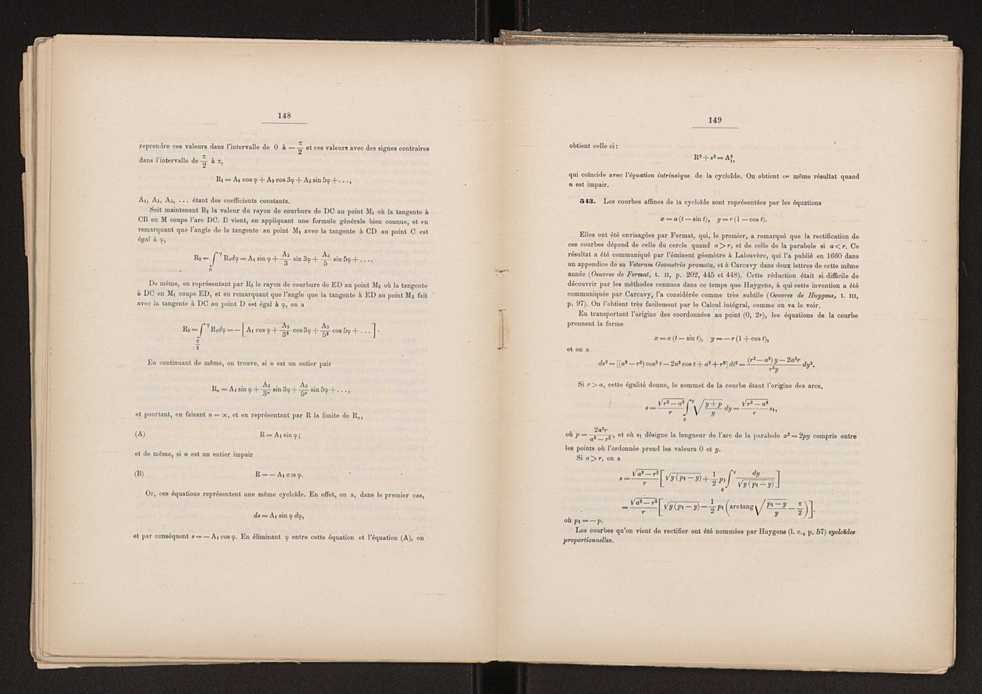 148
reprendre ces valeurs dans l'intervalle de 0 à — π/2 et ces valeurs avec des signes contraires
dans l'intervalle de π/2 à π,
R₁ = A₁ cos φ + A₃ cos 3φ + A₅ sin 5φ + . . . ,
A₁, A₃, A₅, . . . étant des coefficients constants.
Soit maintenant R₂ la valeur du rayon de courbure de DC au point M₁ où la tangente à
CB en M coupe l'arc DC. Il vient, en appliquant une formule générale bien connue, et en
remarquant que l'angle de la tangente au point M₁ avec la tangente à CD au point C est
égal à φ,
R₂ = ∫₀^φ R₁dφ = A₁ sin φ + A₃/3 sin 3φ + A₅/5 sin 5φ + . . . .
De même, en représentant par R₃ le rayon de courbure de ED au point M₂ où la tangente
à DC en M₁ coupe ED, et en remarquant que l'angle que la tangente à ED au point M₂ fait
avec la tangente à DC au point D est égal à φ, on a
R₃ = ∫ R₂dφ = — [A₁ cos φ + A₃/3² cos 3φ + A₅/5² cos 5φ + . . . ].
En continuant de même, on trouve, si n est un entier pair
Rₙ = A₁ sin φ + A₃/3ⁿ sin 3φ + A₅/5ⁿ sin 5φ + . . . ,
et pourtant, en faisant n = ∞, et en représentant par R la limite de Rₙ,
(A) R = A₁ sin φ;
et de même, si n est un entier impair
(B) R = — A₁ cos φ.
Or, ces équations représentent une même cycloïde. En effet, on a, dans le premier cas,
ds = A₁ sin φ dφ,
et par conséquent s = — A₁ cos φ. En éliminant φ entre cette équation et l'équation (A), on
149
obtient celle ci:
R² + s² = A₁²,
qui coïncide avec l'équation intrinsèque de la cycloïde. On obtient ce même résultat quand
n est impair.
543. Les courbes affines de la cycloïde sont représentées par les équations
x = a (t — sin t), y = r (1 — cos t).
Elles ont été envisagées par Fermat, qui, le premier, a remarqué que la rectification de
ces courbes dépend de celle du cercle quand a > r, et de celle de la parabole si a < r. Ce
résultat a été communiqué par l'éminent géomètre à Lalouvère, qui l'a publié en 1660 dans
un appendice de sa Veterum Geometria promota, et à Carcavy dans deux lettres de cette même
année (Oeuvres de Fermat, t. II, p. 202, 445 et 448). Cette réduction était si difficile de
découvrir par les méthodes connues dans ce temps que Huygens, à qui cette invention a été
communiquée par Carcavy, l'a considérée comme très subtile (Oeuvres de Huygens, t. III,
p. 97). On l'obtient très facilement par le Calcul intégral, comme on va le voir.
En transportant l'origine des coordonnées au point (0, 2r), les équations de la courbe
prennent la forme
x = a (t — sin t), y = — r (1 + cos t),
et on a
ds² = [(a² — r²) cos² t — 2a² cos t + a² + r²] dt² = (r² — a²) y — 2a²r / r²y dy².
Si r > a, cette égalité donne, le sommet de la courbe étant l'origine des arcs,
s = √(r² — a²)/r ∫₀^y √((y + p)/y) dy = √(r² — a²)/r s₁,
où p = 2a²r/(a² — r²), et où s₁ désigne la longueur de l'arc de la parabole x² = 2py compris entre
les points où l'ordonnée prend les valeurs 0 et y.
Si a > r, on a
s = √(a² — r²)/r [√(y (p₁ — y)) + 1/2 p₁ ∫₀^y dy/√(y (p₁ — y))]
= √(a² — r²)/r [√(y (p₁ — y)) — 1/2 p₁ (arc tang √((p₁ — y)/y) — π/2)],
où p₁ = — p.
Les courbes qu'on vient de rectifier ont été nommées par Huygens (l. c., p. 57) cycloïdes
proportionnelles.